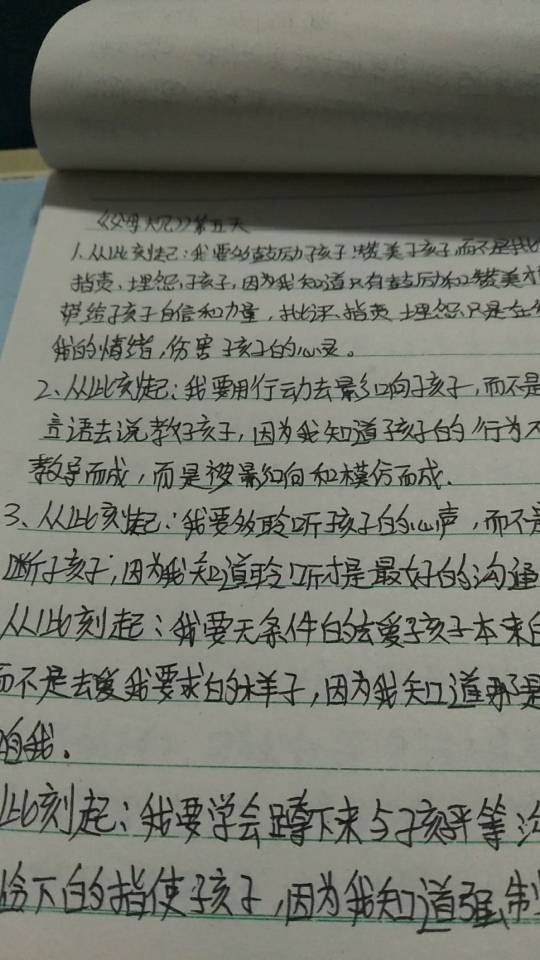 《父母规》第五天
1、从此刻起：我要多鼓励孩子，赞美孩子，而不是批
指责、埋怨孩子，因为我知道只有鼓励和赞美才
带给孩子自信和力量，批评、指责、埋怨只是在
我的情绪，伤害孩子的心灵。
2、从此刻起：我要用行动去影响孩子，而不是
言语去说教孩子，因为我知道孩子的行为不
教导而成，而是被影响和模仿而成．
3、从此刻起：我要多聆听孩子的心声，而不是
断孩子，因为我知道聆听才是最好的沟通
从此刻起：我要无条件的去爱孩子本来
而不是去爱我要求的样子，因为我知道那是
自我．
此刻起：我要学会蹲下来与孩子平等沟
临下的指使孩子，因为我知道强制